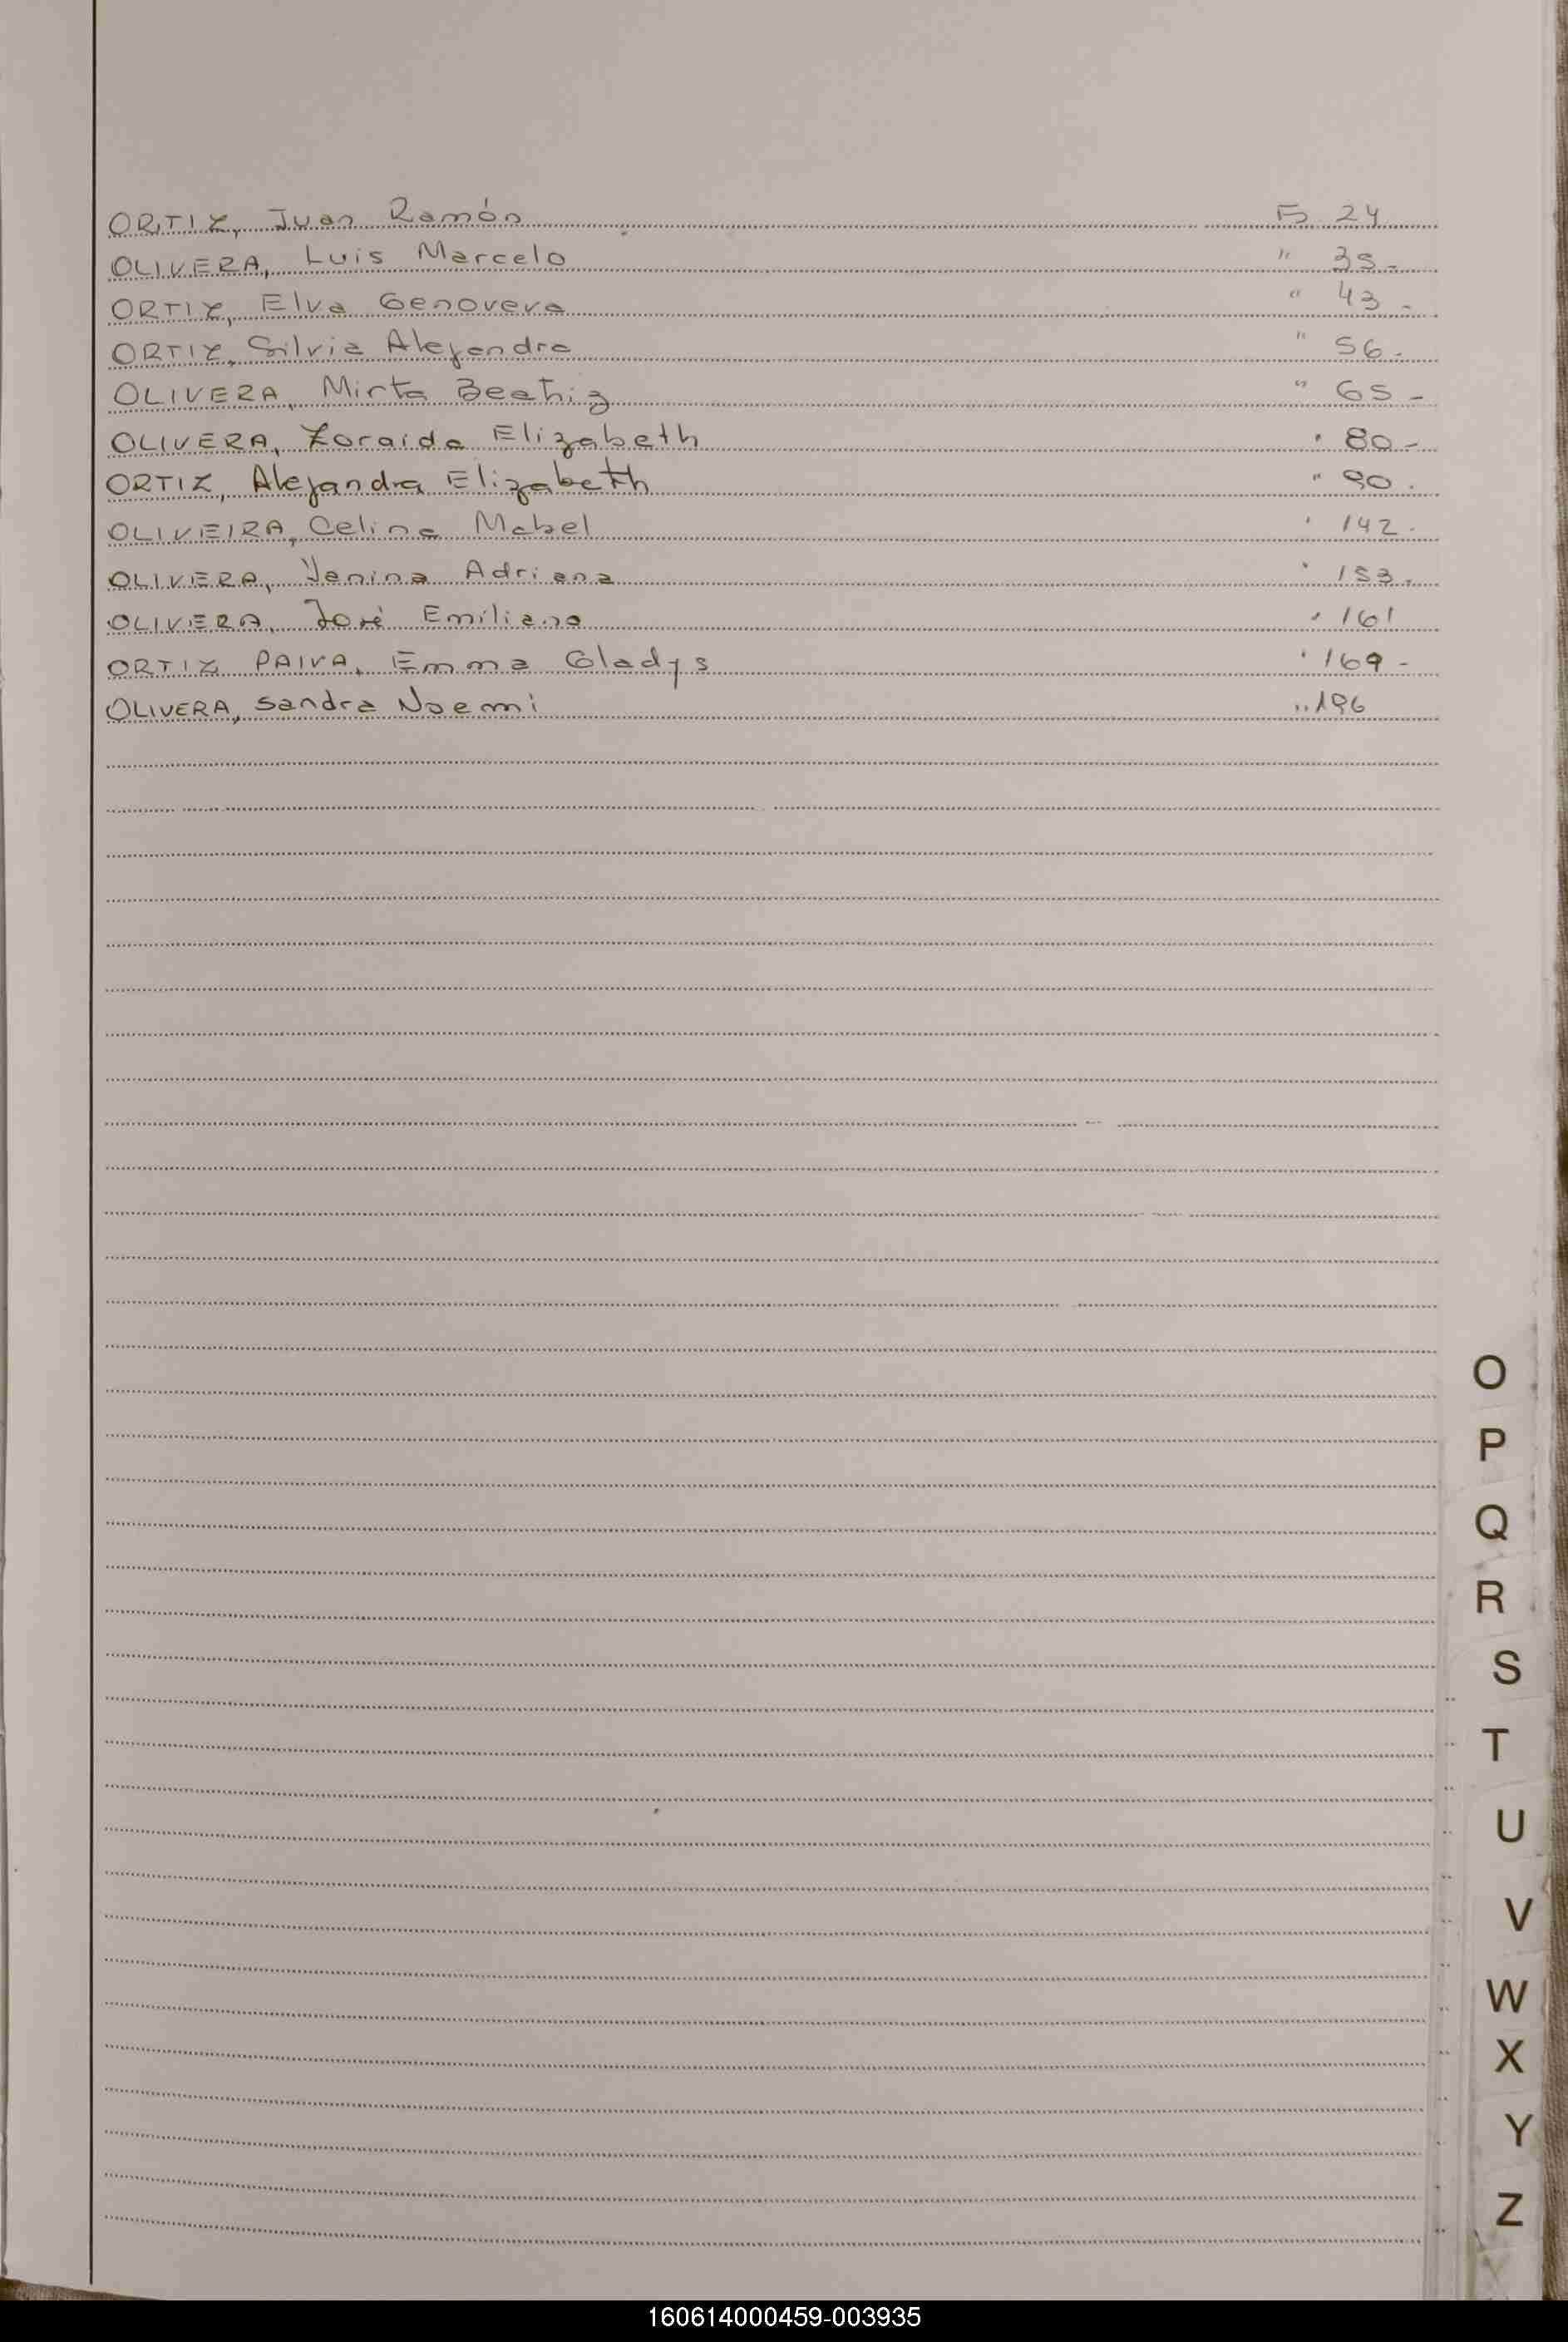 ORTIZ, Juan Ramón Fs 24
OLIVERA, Luis Marcelo " 35-
ORTIZ, Elva Genoveva " 43-
ORTIZ, Silvia Alejandra " 56-
OLIVERA, Mirta Beatriz " 65-
OLIVERA, Zoraida Elizabeth " 80-
ORTIZ, Alejandra Elizabeth " 90.
OLIVEIRA, Celina Mabel " 142.
OLIVERA, Yanina Adriana " 153.
OLIVERA, José Emiliano " 161
ORTIZ PAIVA, Emma Gladys " 169-
OLIVERA, Sandra Noemi " 196
O
P
Q
R
S
T
U
V
W
X
Y
Z
160614000459-003935